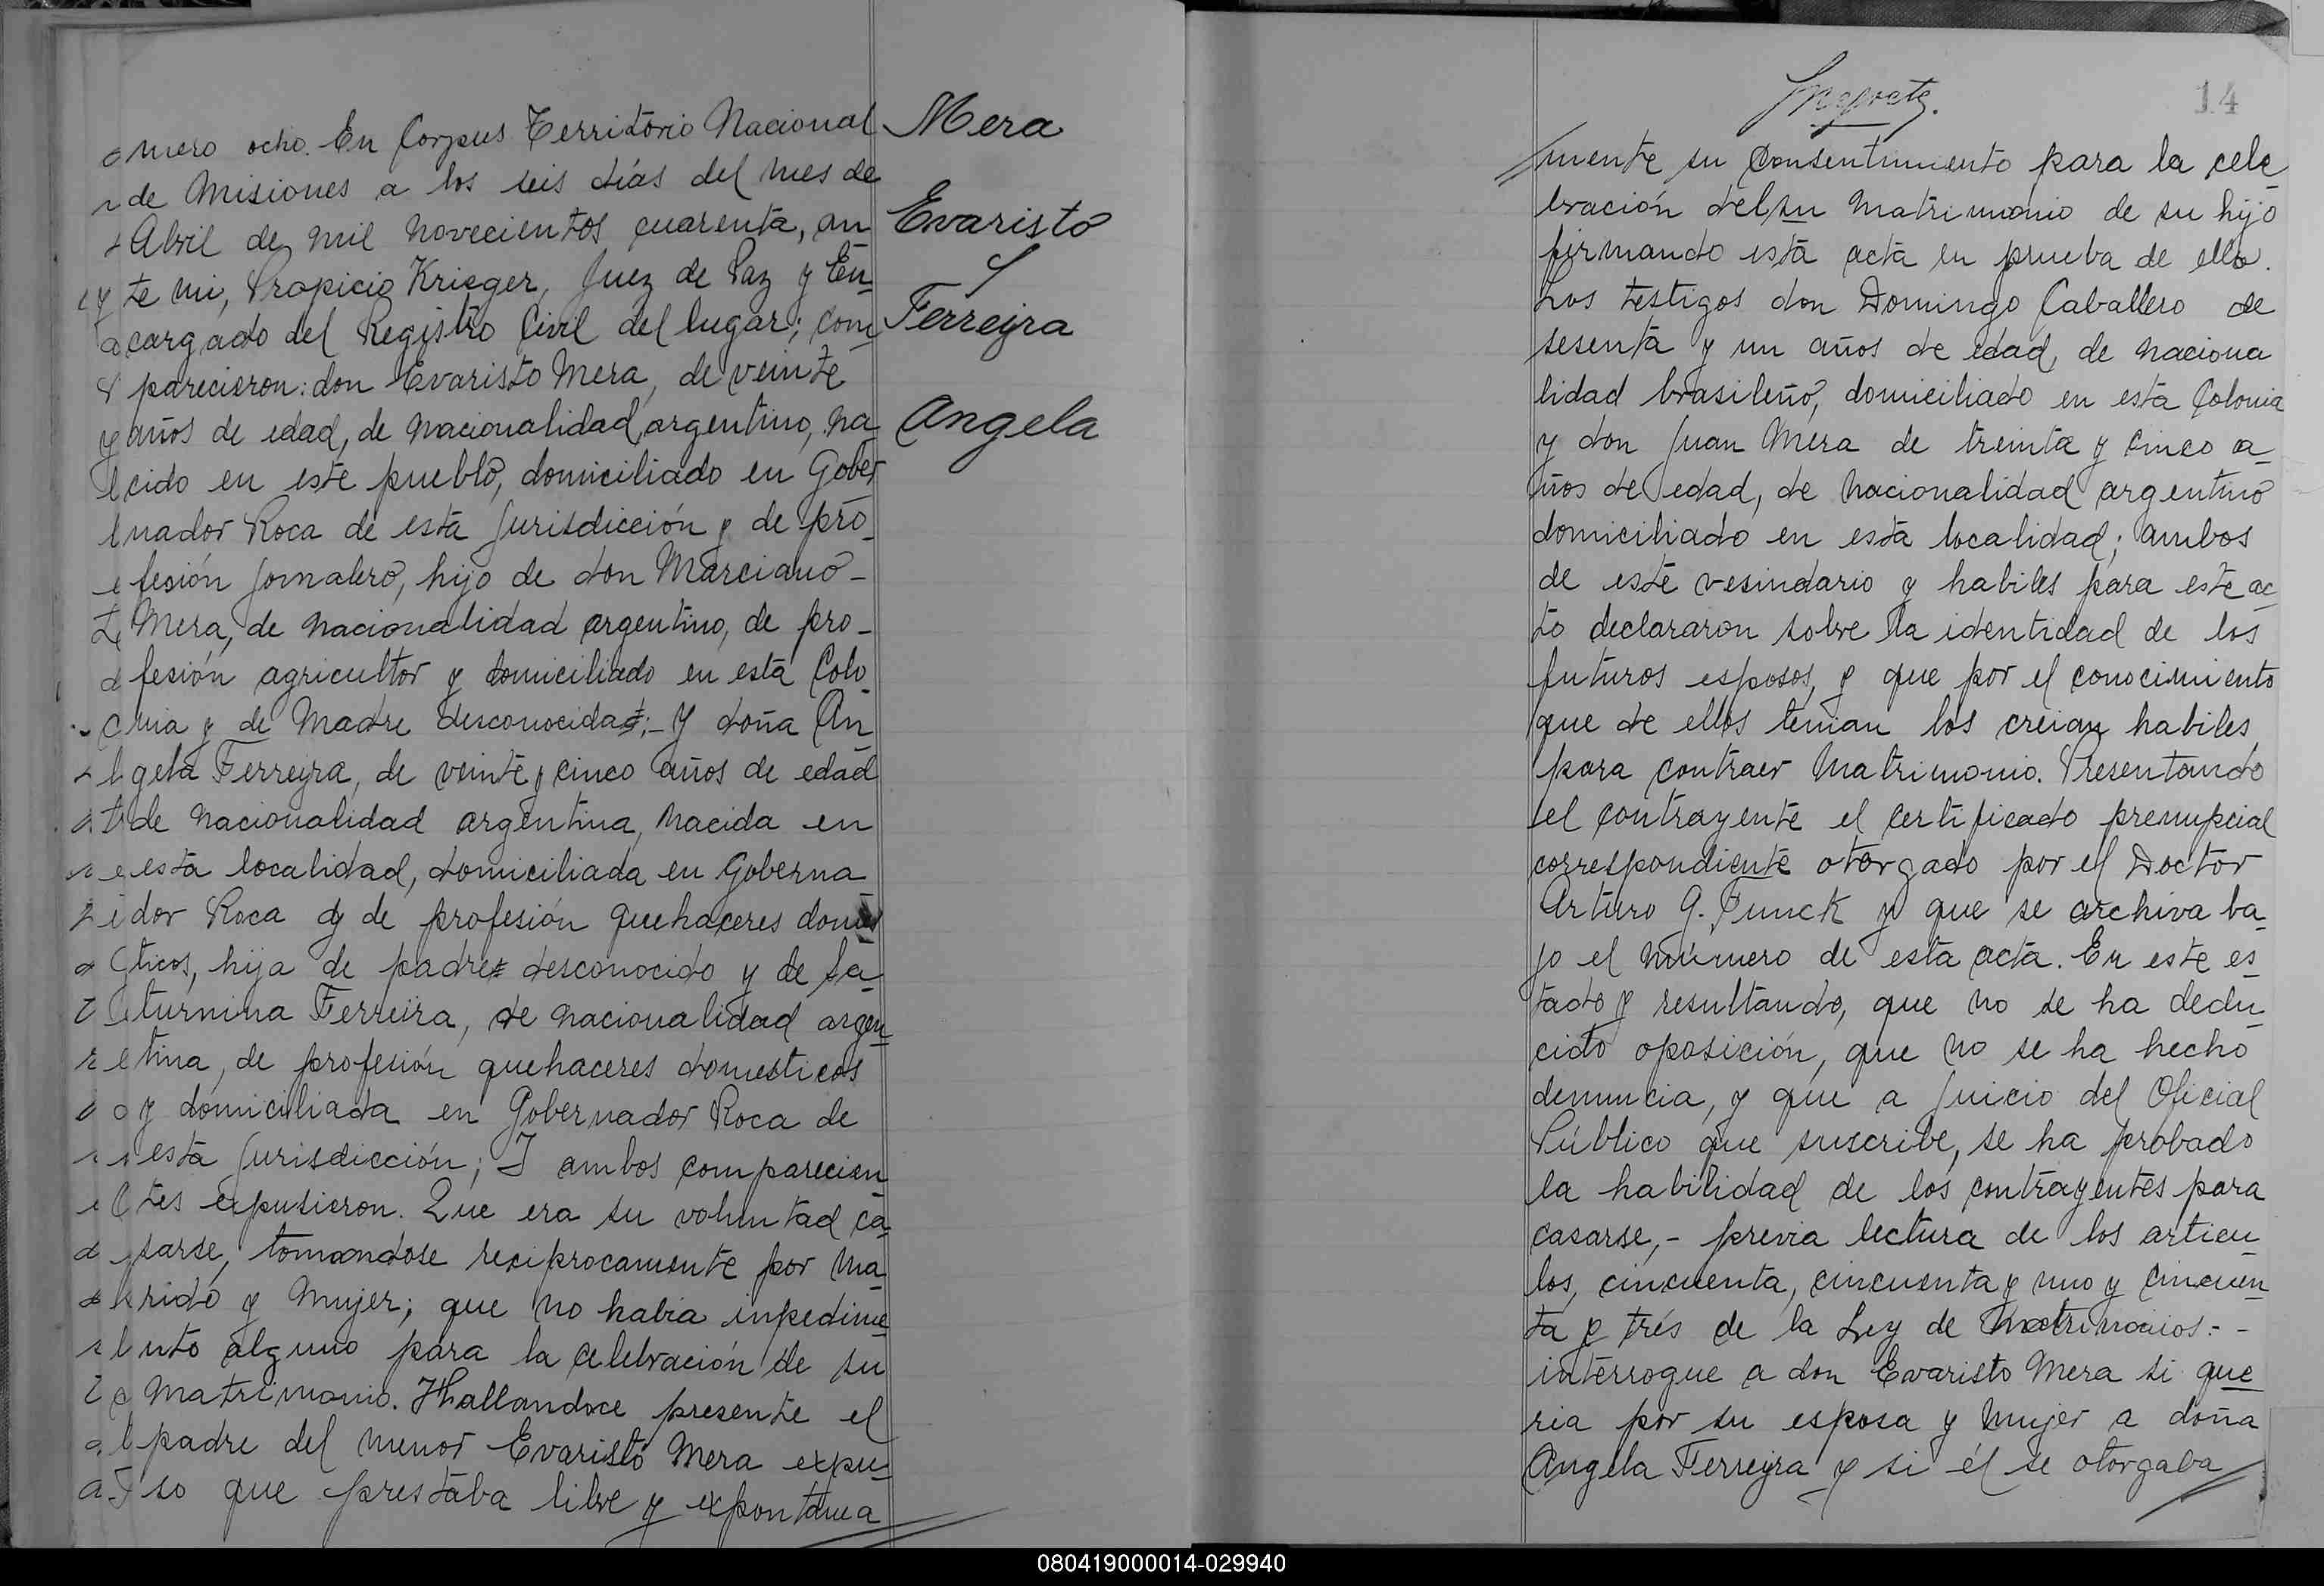 mero ocho. En Corpus Territorio Nacional
de Misiones a los seis días del mes de
Abril de mil novecientos cuarenta, an
te mi, Propicio Krieger, Juez de Paz y En-
cargado del Registro Civil del lugar; com
parecieron: don Evaristo Mera, de veinte
años de edad, de nacionalidad argentino, na
cido en este pueblo, domiciliado en Gober
nador Roca de esta Jurisdicción y de pro-
fesión Jornalero, hijo de don Marciano-
Mera, de nacionalidad argentino, de pro-
fesión agricultor y domiciliado en esta Colo-
nia y de Madre desconocida;- Y doña An
gela Ferreyra, de veinte y cinco años de edad
de nacionalidad argentina, nacida en
esta localidad, domiciliada en Goberna
dor Roca y de profesión quehaceres domés
ticos, hija de padre desconocido y de Sa-
turnina Ferreira, de nacionalidad argen-
tina, de profesión quehaceres domesticos
y domiciliada en Gobernador Roca de
esta Jurisdicción; I ambos comparecien
tes expusieron. Que era su voluntad ca-
sarse, tomandose reciprocamente por ma-
rido y Mujer; que no habia inpedime-
nto alguno para la celebración de su
Matrimonio. Hallandoce presente el
padre del menor Evaristo Mera expu-
so que prestaba libre y expontanea
Mera
Evaristo
y
Ferreyra
Angela
14
mente su Consentimiento para la cele-
bración del su Matrimonio de su hijo
firmando esta acta en prueba de ello.
Los testigos don Domingo Caballero de
sesenta y un años de edad, de naciona
lidad brasileño, domiciliado en esta Colonia
y don Juan Mera de treinta y cinco a-
ños de edad, de nacionalidad argentino
domiciliado en esta localidad; ambos
de este vesindario y habiles para este ac-
to declararon sobre la identidad de los
futuros esposos, y que por el conocimiento
que de ellos tenian los creian habiles
para contraer Matrimonio. Presentando
el contrayente el certificado prenupcial
correspondiente otorgado por el Doctor
Arturo G. Funck y que se archiva ba-
jo el número de esta acta. En este es-
tado y resultando, que no se ha dedu-
cido oposición, que no se ha hecho
denuncia, y que a Juicio del Oficial
Público que suscribe, se ha probado
la habilidad de los contrayentes para
casarse,- previa lectura de los articu-
los, cincuenta, cincuenta y uno y cincuen-
ta y trés de la Ley de Matrimonios:-
interrogue a don Evaristo Mera si que-
ria por su esposa y Mujer a doña
Angela Ferreyra y si él se otorgaba
080419000014-029940